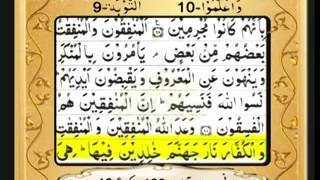 وَاعْلَمُوْٓا-10 اَلتَّوْبَة-9
بِاَنَّهُمْ كَانُوْا مُجْرِمِيْنَ ۝ اَلْمُنٰفِقُوْنَ وَالْمُنٰفِقٰتُ
بَعْضُهُمْ مِّنْۢ بَعْضٍ ۘ يَاْمُرُوْنَ بِالْمُنْكَرِ
وَيَنْهَوْنَ عَنِ الْمَعْرُوْفِ وَيَقْبِضُوْنَ اَيْدِيَهُمْ
نَسُوا اللّٰهَ فَنَسِيَهُمْ ۭ اِنَّ الْمُنٰفِقِيْنَ هُمُ
الْفٰسِقُوْنَ ۝ وَعَدَ اللّٰهُ الْمُنٰفِقِيْنَ وَالْمُنٰفِقٰتِ
وَالْكُفَّارَ نَارَ جَهَنَّمَ خٰلِدِيْنَ فِيْهَا ۭ هِىَ